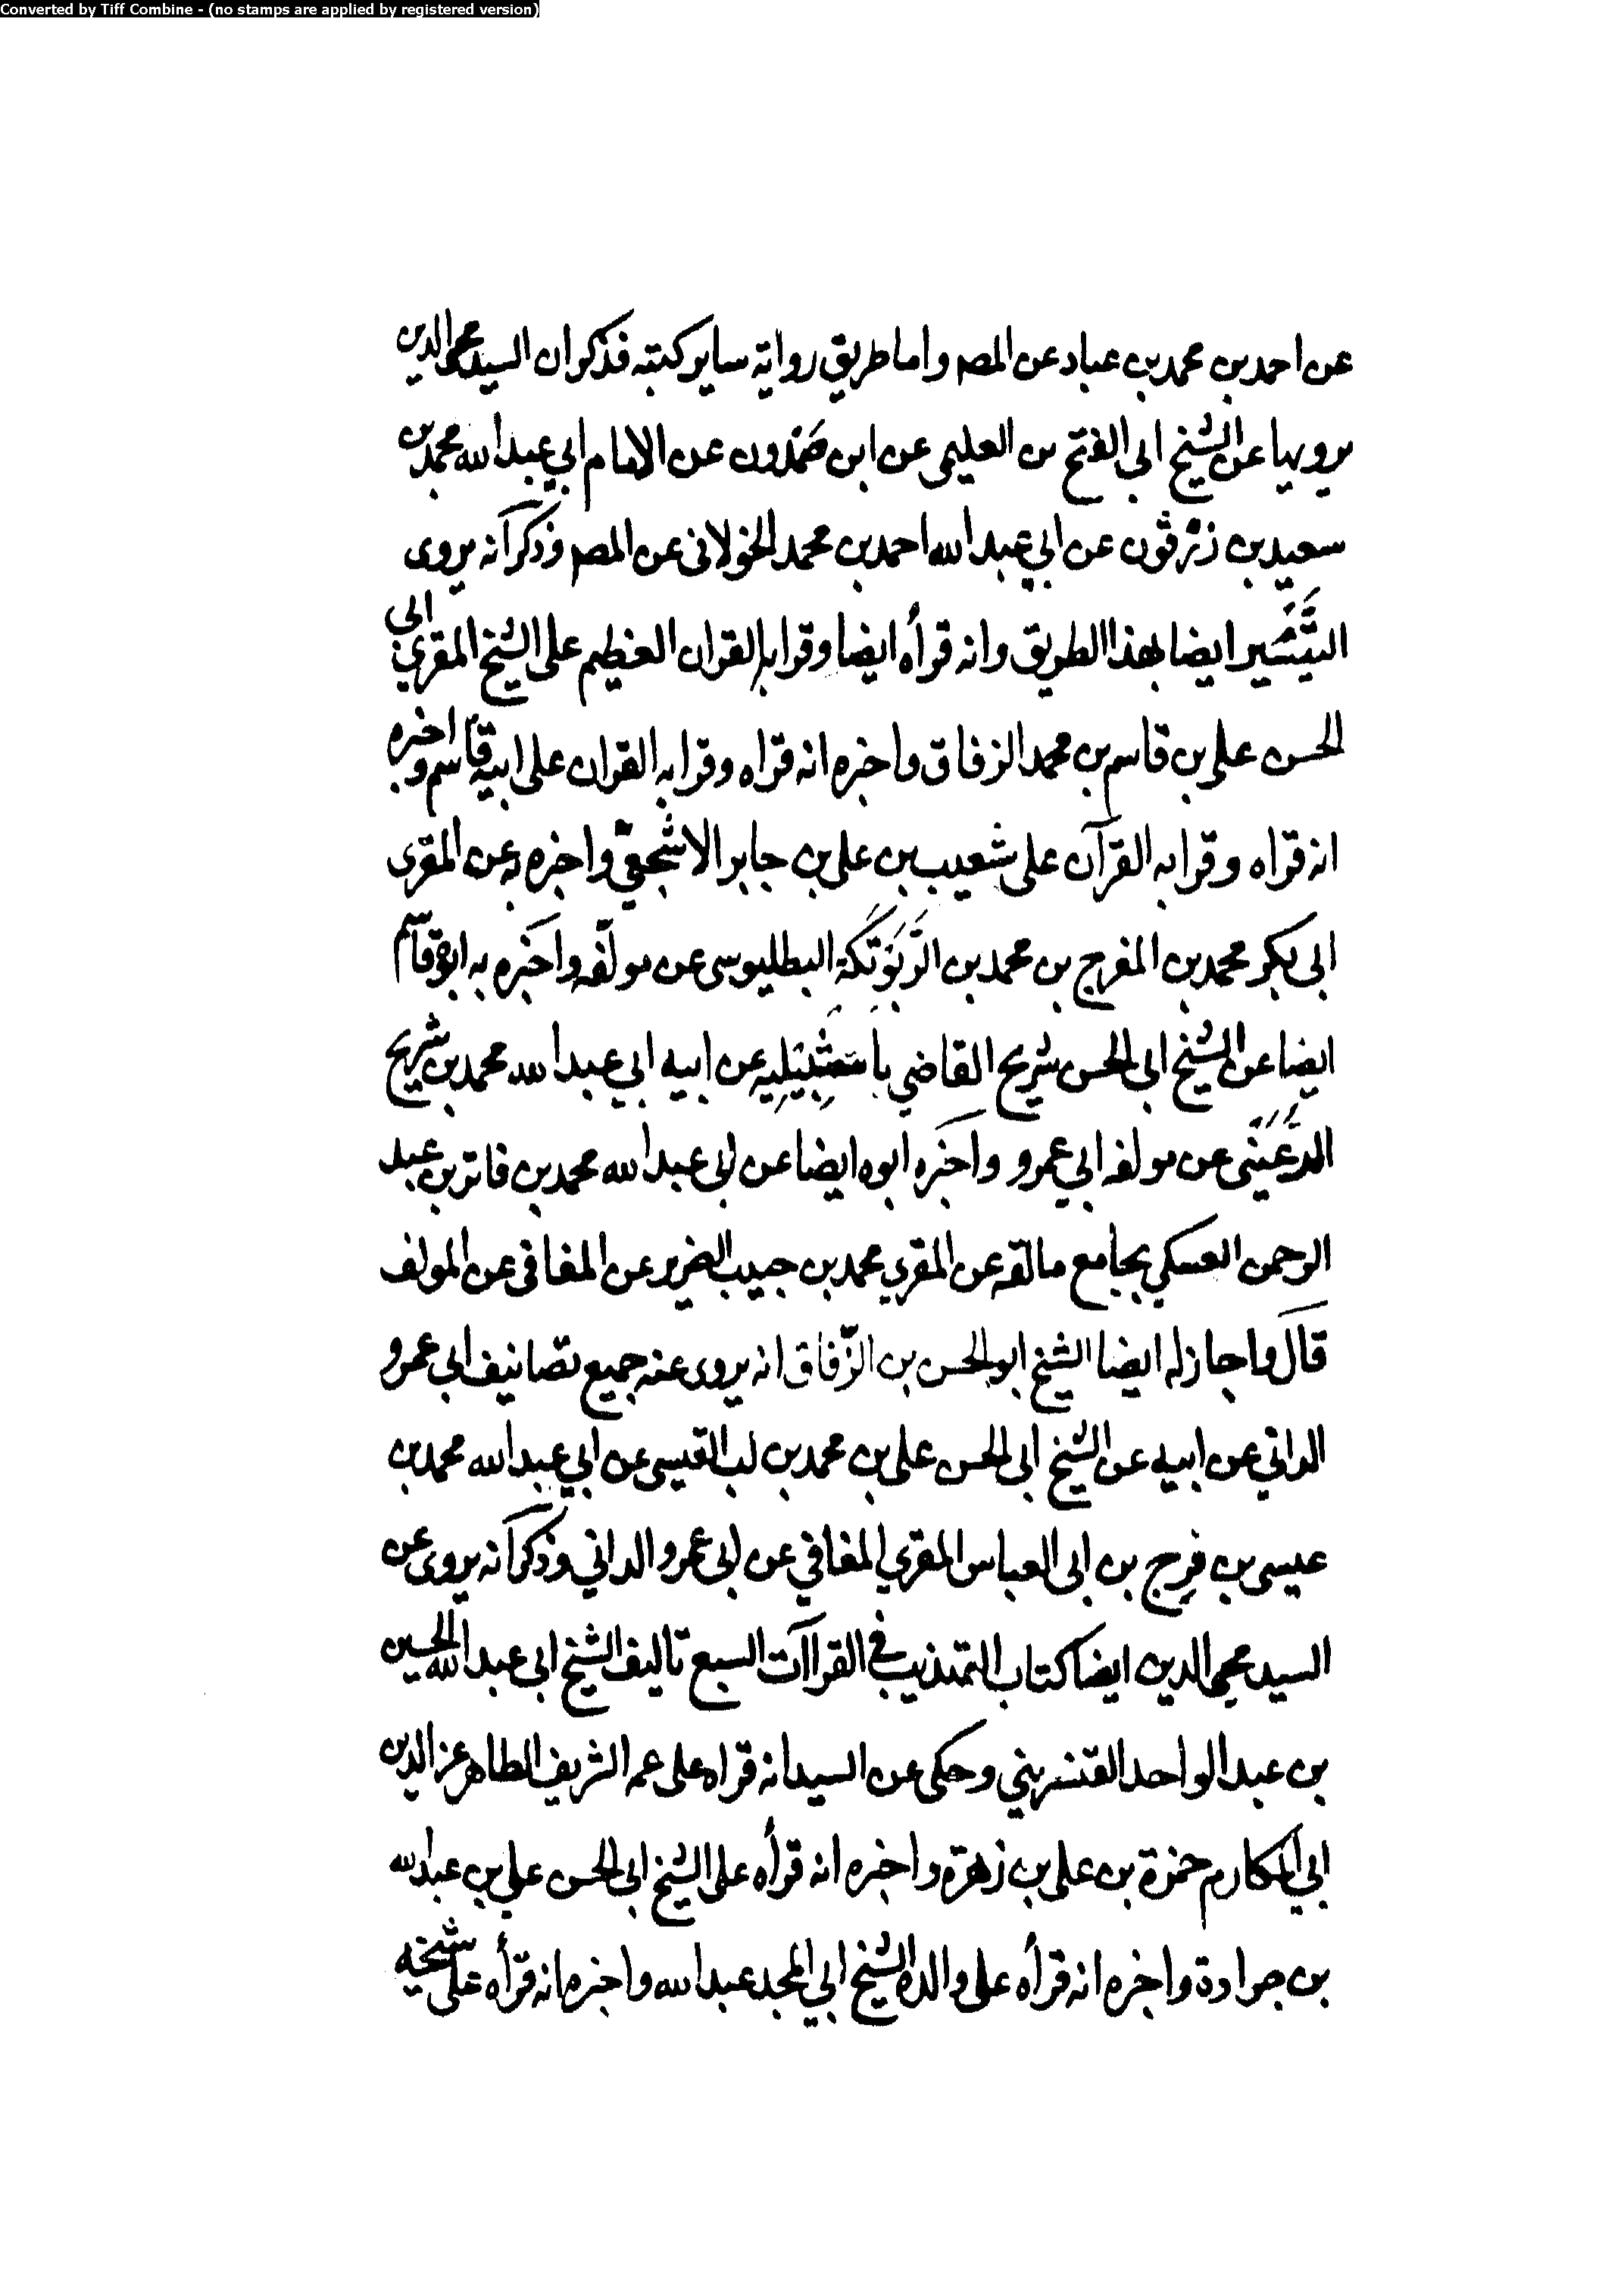 Converted by Tiff Combine - (no stamps are applied by registered version)
عن احمد بن محمد بن عباد عن المص واما طريق رواية ساير كتبه فذكر ان السيد محيي الدين
يرويها عن الشيخ ابي الفتح بن العليمى عن ابن صمدون عن الامام ابي عبد الله محمد بن
سعيد بن زرقون عن ابي عبد الله احمد بن محمد الخولانى عن المص وذكر انه يروى
التيسير ايضا بهذا الطريق وانه قرأه ايضا وقرا به القران العظيم على الشيخ المقري ابي
الحسن علي بن قاسم بن محمد الزفاق واخبره انه قراه وقرا به القران على ابيه قاسم واخبره
انه قراه وقرا به القرآن على شعيب بن على بن جابر الاشجعيّ واخبره به عن المقرى
ابى بكر محمد بن المفرج بن محمد بن الرَّبَوتَكَة البطليوسى عن مولّفه واخبره به ابوه قاسم
ايضا عن الشيخ ابى الحسن شريح القاضي باشبيليه عن ابيه ابي عبد الله محمد بن شريح
الرعينى عن مولفه ابي عمرو واخبره ابوه ايضا عن ابى عبد الله محمد بن فاتر بن عبد
الرحمن العسكي بجامع مالقه عن المقري محمد بن حبيب الضرير عن المغافى عن المولف
قال واجاز له ايضا الشيخ ابو الحسن بن الزّفاق انه يروى عنه جميع تصانيف ابى عمرو
الداني عن ابيه عن الشيخ ابى الحسن على بن محمد بن لب القيسى عن ابي عبد الله محمد بن
عيسى بن فرج بن ابى العباس المقري المغافي عن ابى عمرو الداني وذكر انه يروى عن
السيد محيى الدين ايضا كتاب التهذيب في القراآت السبع تاليف الشيخ ابى عبد الله الحسين
بن عبد الواحد القنسريني وحكى عن السيد انه قراه على عمه الشريف الطاهر عز الدين
ابي المكارم حمزة بن على بن زهرة واخبره انه قرأه على الشيخ ابى الحسن علي بن عبد الله
بن جرادة واخبره انه قرأه على والده الشيخ ابي المجد عبد الله واخبره انه قرأه على شيخه